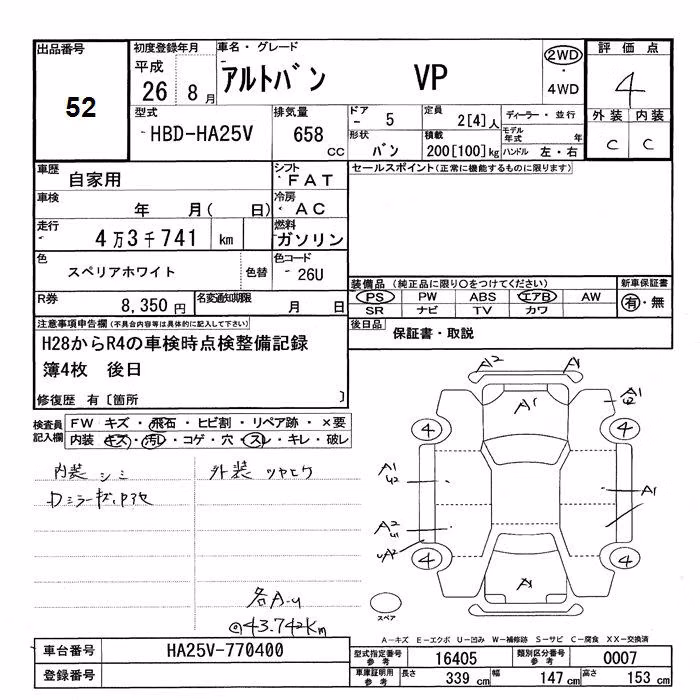 出品番号
52
初度登録年月
平成
26 8月
車名・グレード
アルトバン VP
2WD
・
4WD
評価点
4
外装 内装
C C
型式
HBD-HA25V
排気量
658
CC
ドア
5
定員
2[4]人
ディーラー・並行
モデル年式 年
形状
バン
積載
200[100]kg
ハンドル 左・右
車歴
自家用
シフト
FAT
セールスポイント(正常に機能するものに限ります)
車検
年 月( 日)
冷房
AC
走行
4万3千741 km
燃料
ガソリン
色
スペリアホワイト
色替
色コード
26U
装備品 (純正品に限り○をつけてください)
PS PW ABS エアB AW
SR ナビ TV カワ
新車保証書
有・無
R券
8,350円
名変通知期限
月 日
後日品
保証書・取説
注意事項申告欄(不具合内容等は具体的に記入して下さい)
H28からR4の車検時点検整備記録
簿4枚 後日
修復歴 有〔箇所 〕
検査員記入欄
FW キズ・飛石・ヒビ割・リペア跡・×要
内装 キズ・汚レ・コゲ・穴・スレ・キレ・破レ
内装シミ
外装ツヤヒケ
各A-U
43.742Km
A2 A
A1
A1 U2
4 4
A1 U2
A1
A2 U1
UA2
4 4
A1
スペア
A-キズ E-エクボ U-凹み W-補修跡 S-サビ C-腐食 XX-交換済
車台番号
HA25V-770400
登録番号
型式指定番号
参考
16405
類別区分番号
参考
0007
車庫証明用
参考
長さ 339 cm
幅 147 cm
高さ 153 cm